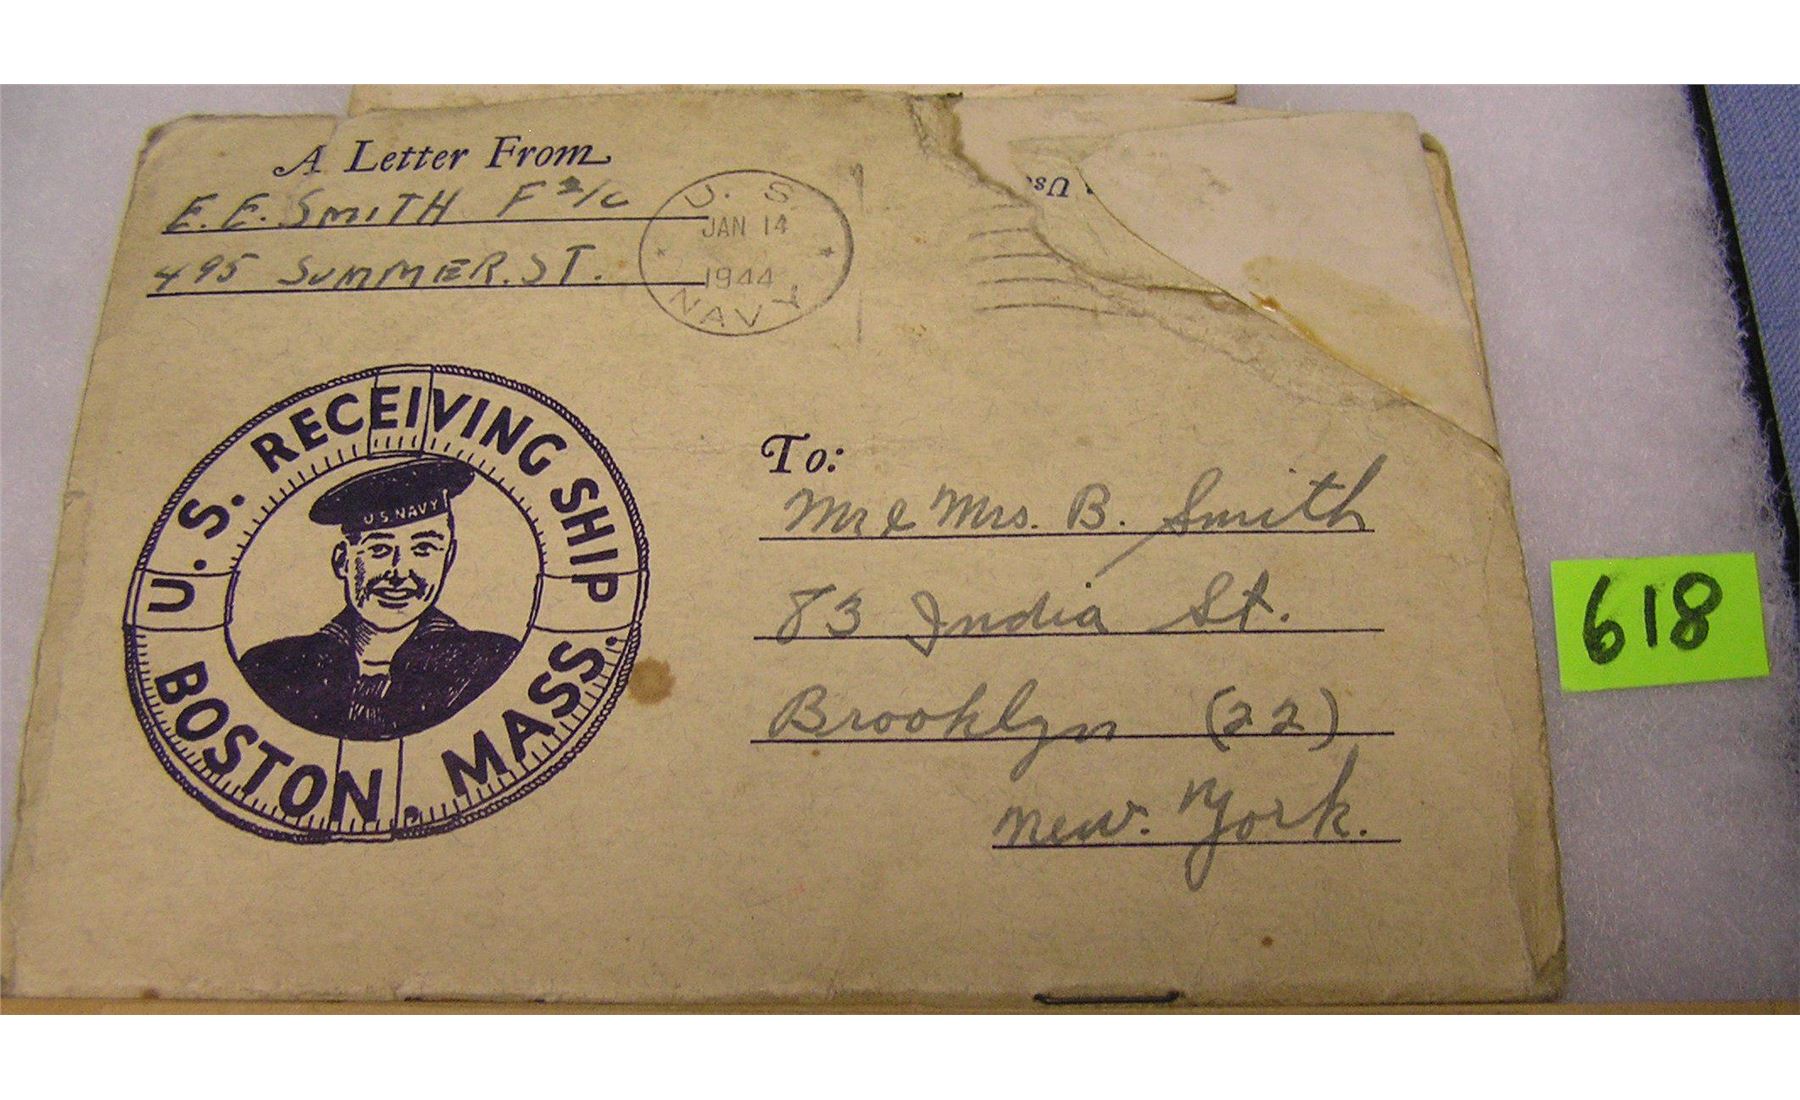 A Letter From
E. E. SMITH F 2/C
495 SUMMER. ST.
U. S.
JAN 14
1944
NAVY
U. S. RECEIVING SHIP
U.S. NAVY
BOSTON, MASS.
To:
Mr & Mrs. B. Smith
83 India St.
Brooklyn (22)
New. York.
618